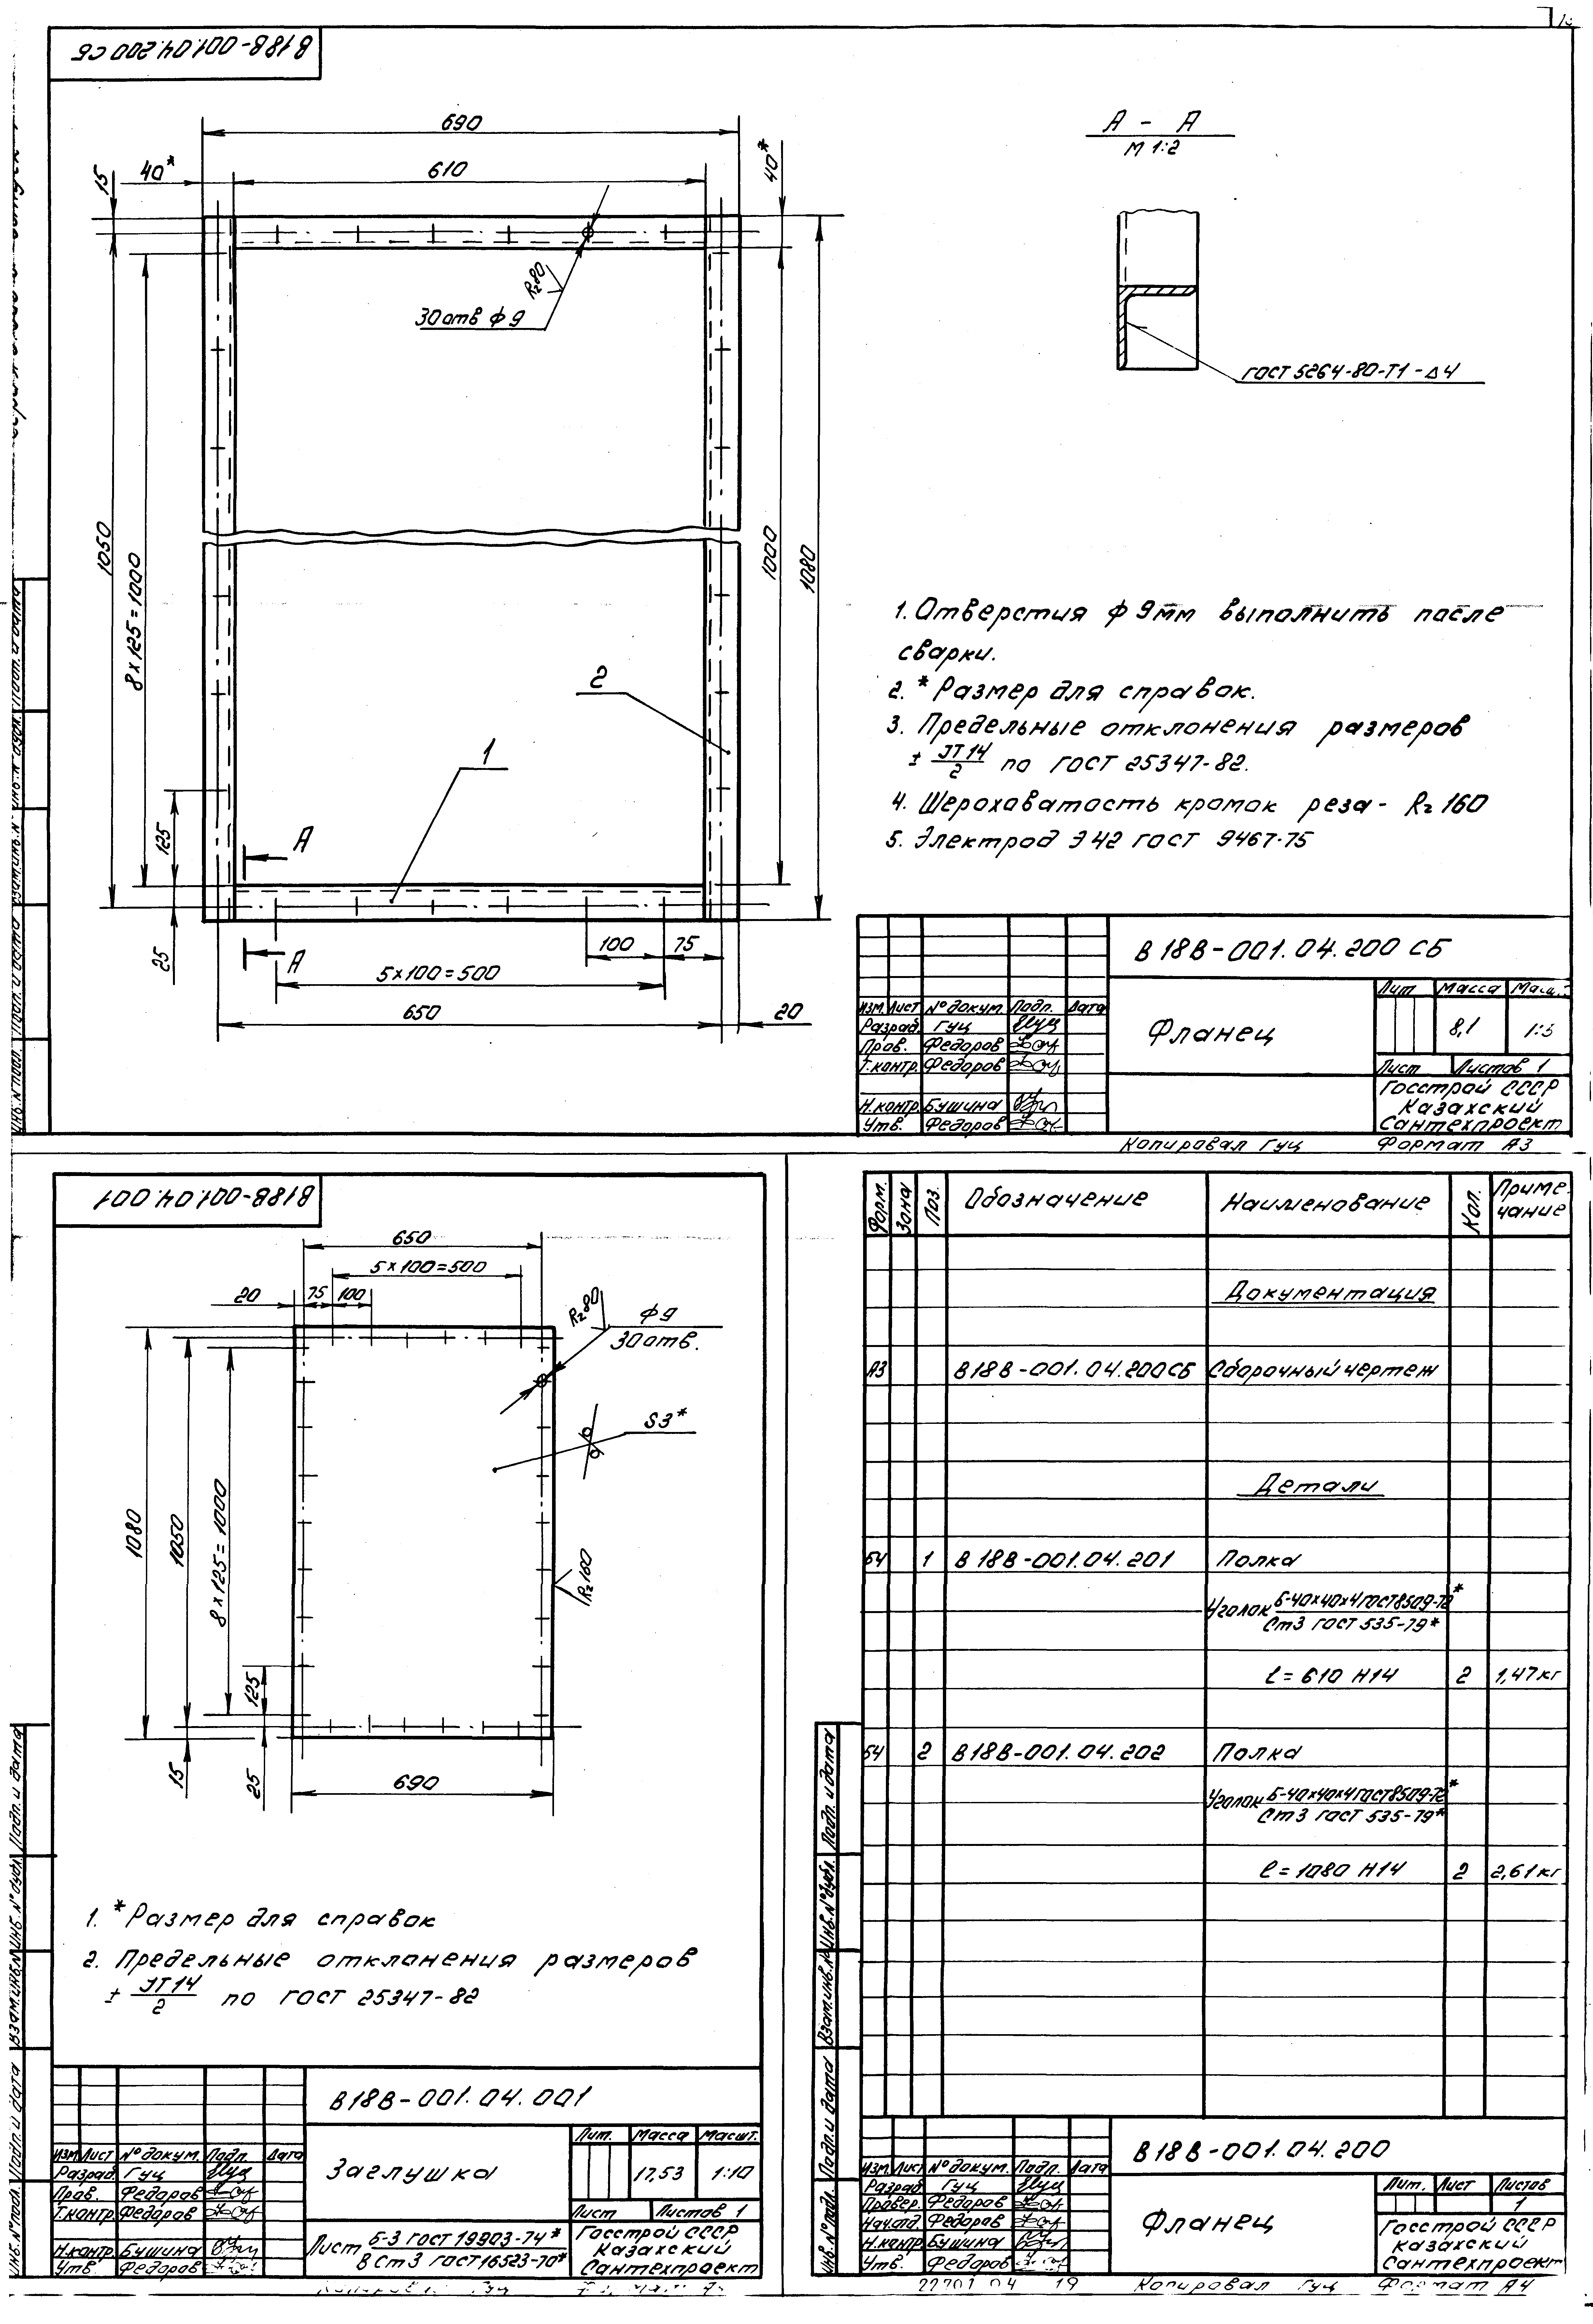 В18В-001.04.200 СБ
690
610
40*
15
40*
30 отв ф 9
Rz80
1050
8×125=1000
1000
1080
125
25
А
А
1
2
100
75
5×100=500
650
20
А - А
М 1:2
ГОСТ 5264-80-Т1-Δ4
1. Отверстия ф 9мм выполнить после
сварки.
2. * Размер для справок.
3. Предельные отклонения размеров
± JT14/2 по ГОСТ 25347-82.
4. Шероховатость кромок реза - Rz 160
5. Электрод Э42 ГОСТ 9467-75
В 18В-001.04.200 СБ
Фланец
Лит Масса
8,1
Лист Листов 1
Изм. Лист № докум. Подп. Дата
Разраб. Гуц
Пров. Федоров
Т.контр. Федоров
Н.контр. Бушина
Утв. Федоров
Госстрой СССР
Казахский
Сантехпроект
Копировал Гуц Формат А3
В18В-001.04.001
650
5×100=500
20
75
100
Rz80
ф9
30 отв.
S3*
Rz160
1080
1050
8×125=1000
125
15
25
690
1. * Размер для справок
2. Предельные отклонения размеров
± JT14/2 по ГОСТ 25347-82
В18В-001.04.001
Заглушка
Лит. Масса Масшт.
17,53 1:10
Лист Листов 1
Изм. Лист № докум. Подп. Дата
Разраб. Гуц
Пров. Федоров
Т.контр. Федоров
Н.контр. Бушина
Утв. Федоров
Лист Б-3 ГОСТ 19903-74*
ВСт3 ГОСТ 16523-70*
Госстрой СССР
Казахский
Сантехпроект
Форм. Зона Поз. Обозначение Наименование Кол. Примечание
Документация
А3 В18В-001.04.200СБ Сборочный чертеж
Детали
БЧ 1 В 18В-001.04.201 Полка
Уголок Б-40×40×4 ГОСТ 8509-72*
Ст3 ГОСТ 535-79*
ℓ= 610 Н14 2 1,47кг
БЧ 2 В18В-001.04.202 Полка
Уголок Б-40×40×4 ГОСТ 8509-72*
Ст3 ГОСТ 535-79*
ℓ = 1080 Н14 2 2,61кг
В 18 В-001.04.200
Фланец
Лит. Лист Листов
1
Изм. Лист № докум. Подп. Дата
Разраб. Гуц
Провер. Федоров
Нач.отд. Федоров
Н.контр. Бушина
Утв. Федоров
Госстрой СССР
Казахский
Сантехпроект
22701 04 19
Копировал Гуц Формат А4
Инв. № подл. Подп. и дата Взам. инв. № Инв. № дубл. Подп. и дата
Инв. № подл. Подп. и дата Взам. инв. № Инв. № дубл. Подп. и дата
Инв. № подл. Подп. и дата Взам. инв. № Инв. № дубл. Подп. и дата